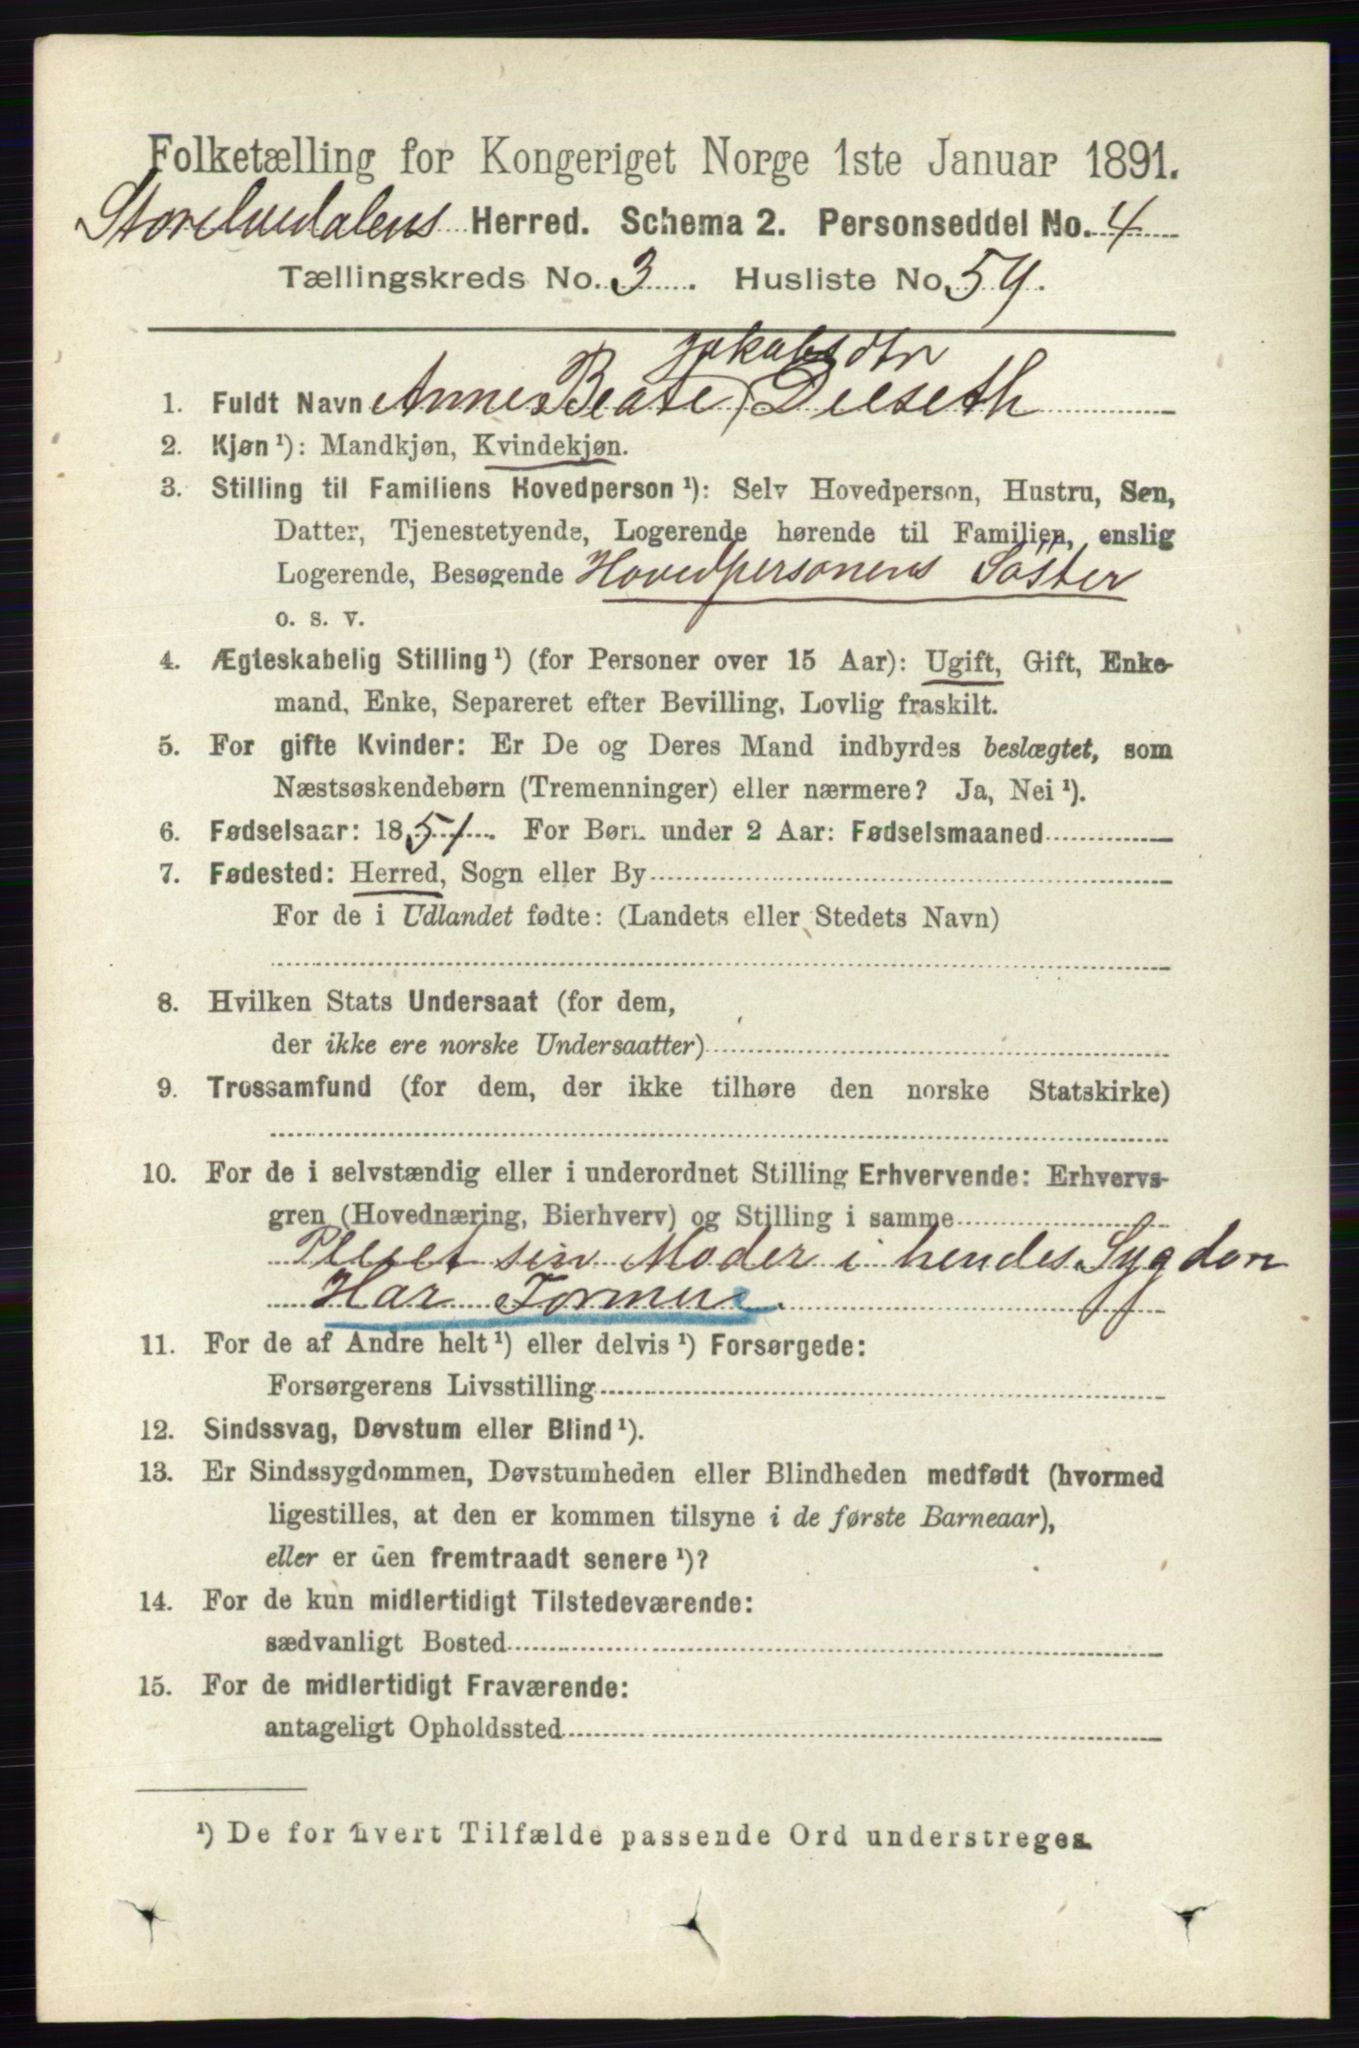 Folketælling for Kongeriget Norge 1ste Januar 1891.
Storelvedalens Herred. Schema 2. Personseddel No. 4
Tællingskreds No. 3. Husliste No. 59.
Jakobsdtr
1. Fuldt Navn Anne Beate Dieseth
2. Kjøn ¹): Mandkjøn, Kvindekjøn.
3. Stilling til Familiens Hovedperson ¹): Selv Hovedperson, Hustru, Søn,
Datter, Tjenestetyende, Logerende hørende til Familien, enslig
Logerende, Besøgende Hovedpersonens Søster
o. s. v.
4. Ægteskabelig Stilling ¹) (for Personer over 15 Aar): Ugift, Gift, Enke-
mand, Enke, Separeret efter Bevilling, Lovlig fraskilt.
5. For gifte Kvinder: Er De og Deres Mand indbyrdes beslægtet, som
Næstsøskendebørn (Tremenninger) eller nærmere? Ja, Nei ¹).
6. Fødselsaar: 1851. For Børn under 2 Aar: Fødselsmaaned
7. Fødested: Herred, Sogn eller By
For de i Udlandet fødte: (Landets eller Stedets Navn)
8. Hvilken Stats Undersaat (for dem,
der ikke ere norske Undersaatter)
9. Trossamfund (for dem, der ikke tilhøre den norske Statskirke)
10. For de i selvstændig eller i underordnet Stilling Erhvervende: Erhvervs-
gren (Hovednæring, Bierhverv) og Stilling i samme
Pleiet sin Moder i hendes Sygdom
Har Formue.
11. For de af Andre helt ¹) eller delvis ¹) Forsørgede:
Forsørgerens Livsstilling
12. Sindssvag, Døvstum eller Blind ¹).
13. Er Sindssygdommen, Døvstumheden eller Blindheden medfødt (hvormed
ligestilles, at den er kommen tilsyne i de første Barneaar),
eller er den fremtraadt senere ¹)?
14. For de kun midlertidigt Tilstedeværende:
sædvanligt Bosted
15. For de midlertidigt Fraværende:
antageligt Opholdssted
¹) De for hvert Tilfælde passende Ord understreges.